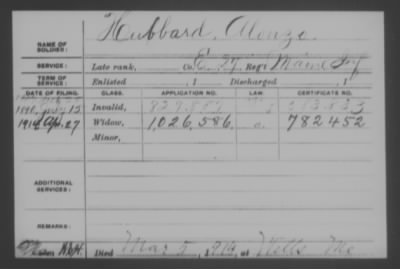 Hubbard, Alonzo
NAME OF SOLDIER:
SERVICE: Late rank, Co. E, 27" Reg't Maine Inf
TERM OF SERVICE: Enlisted , 1 Discharged , 1
DATE OF FILING. CLASS. APPLICATION NO. LAW. CERTIFICATE NO.
Invalid,
1914 Ap. 27 Widow, 1,026,586 782452
Minor,
ADDITIONAL SERVICES:
REMARKS:
Died Mar 5, 1914, Wells Me